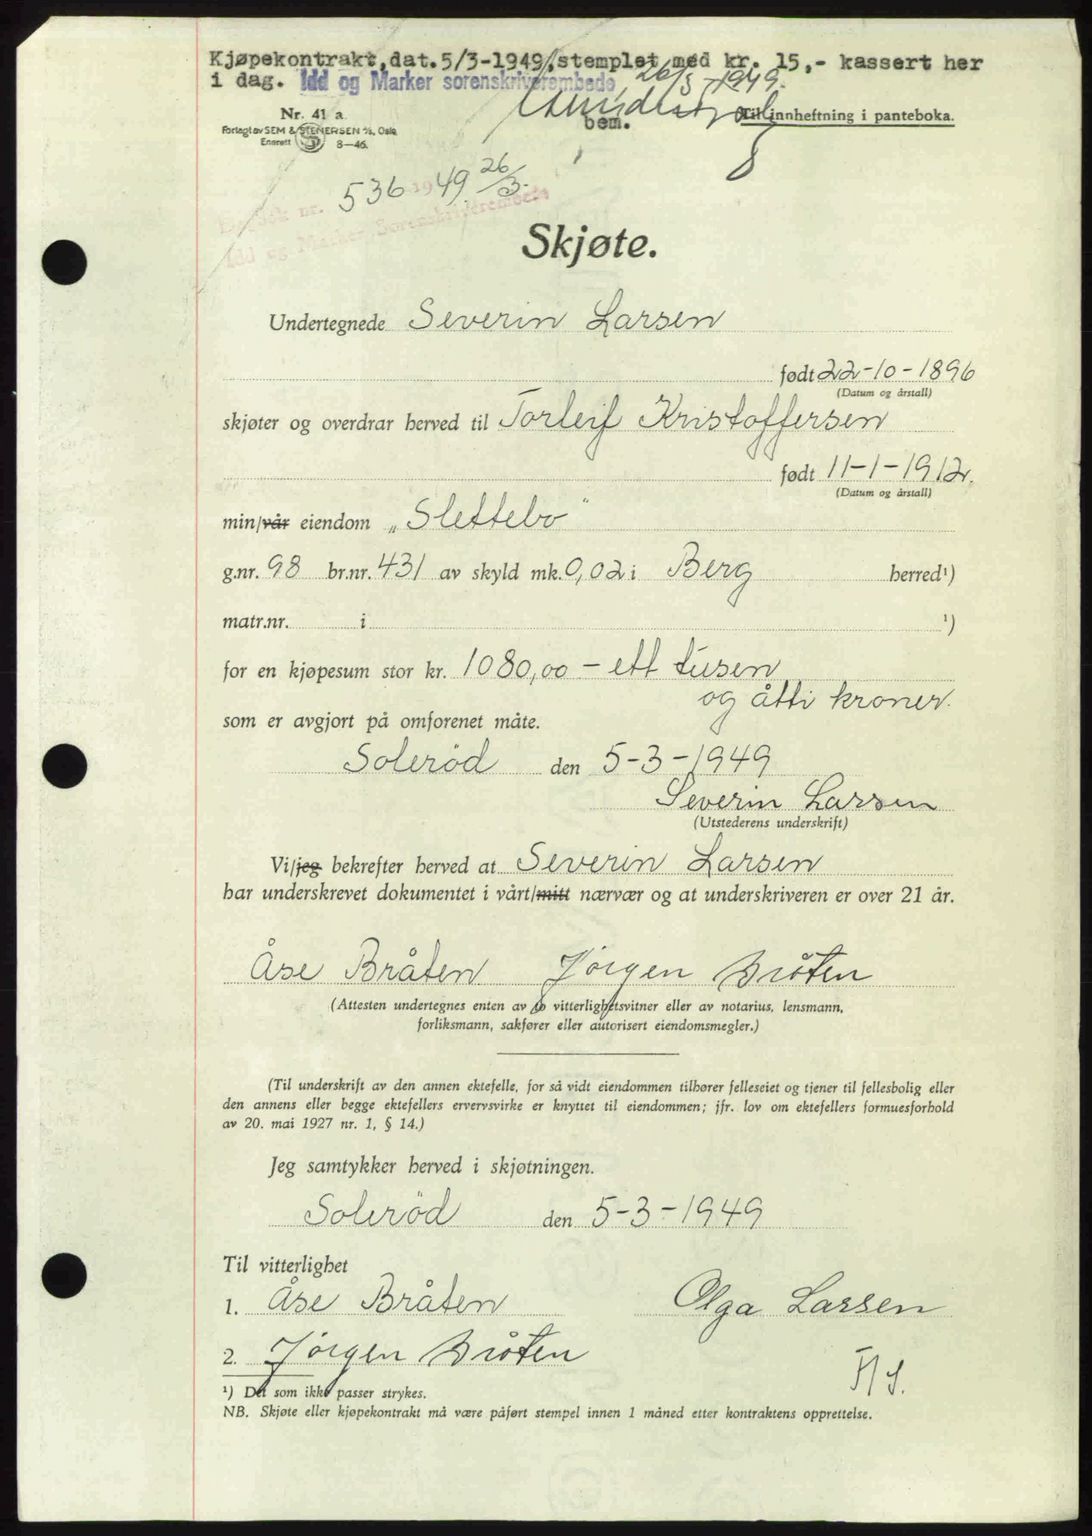 Kjøpekontrakt, dat. 5/3-1949, stemplet med kr. 15,- kassert her
i dag. Idd og Marker sorenskriverembede, 26/3 1949.
bem.
Nr. 41 a.
Til innheftning i panteboka.
Forlagt av SEM & STENERSEN A/S, Oslo
Enerett 8—46.
Dagbok nr. 536 1949 26/3.
Idd og Marker Sorenskriverembede
Skjøte.
Undertegnede Severin Larsen
født 22-10-1896
(Datum og årstall)
skjøter og overdrar herved til Torleif Kristoffersen
født 11-1-1912.
(Datum og årstall)
min/vår eiendom „Slettebo"
g.nr. 98 br.nr. 431 av skyld mk. 0,02 i Berg herred¹)
matr.nr. i ¹)
for en kjøpesum stor kr. 1080,00 – ett tusen
og åtti kroner.
som er avgjort på omforenet måte.
Solerød den 5-3-1949
Severin Larsen
(Utstederens underskrift)
Vi/jeg bekrefter herved at Severin Larsen
har underskrevet dokumentet i vårt/mitt nærvær og at underskriveren er over 21 år.
Åse Bråten Jørgen Bråten
(Attesten undertegnes enten av to vitterlighetsvitner eller av notarius, lensmann,
forliksmann, sakfører eller autorisert eiendomsmegler.)
(Til underskrift av den annen ektefelle, for så vidt eiendommen tilhører felleseiet og tjener til fellesbolig eller
den annens eller begge ektefellers ervervsvirke er knyttet til eiendommen; jfr. lov om ektefellers formuesforhold
av 20. mai 1927 nr. 1, § 14.)
Jeg samtykker herved i skjøtningen.
Solerød den 5-3-1949
Til vitterlighet
1. Åse Bråten Olga Larsen
2. Jørgen Bråten
¹) Det som ikke passer strykes.
NB. Skjøte eller kjøpekontrakt må være påført stempel innen 1 måned etter kontraktens opprettelse.